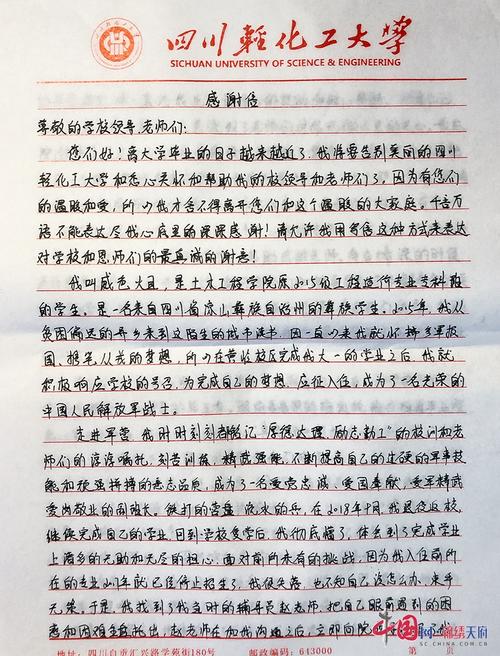 四川輕化工大學
SICHUAN UNIVERSITY OF SCIENCE & ENGINEERING
感谢信
尊敬的学校领导、老师们:
您们好!离大学毕业的日子越来越近了,我将要告别美丽的四川
轻化工大学和悉心关怀和帮助我的校领导和老师们了,因为有您们
的温暖和爱,所以我才舍不得离开您们和这个温暖的大家庭。千言万
语不能表达尽我心底里的深深感谢!请允许我用写信这种方式来表达
对学校和恩师们的最真诚的谢意!
我叫威色火且,是土木工程学院原2015级工程造价专业专科班
的学生。是一名来自四川省凉山彝族自治州的彝族学生。2015年,我从
贫困偏远的异乡来到这陌生的城市读书。因一直以来我就怀揣参军报
国、携笔从戎的梦想,所以在黄岭校区完成我大一的学业之后,我就
积极响应学校的号召,为完成自己的梦想,应征入伍,成为了一名光荣的
中国人民解放军战士。
走进军营,我时时刻刻都铭记“厚德达理,励志勤工”的校训和老
师们的谆谆嘱托,刻苦训练,精武强能,不断提高自己的过硬的军事技
能和顽强拼搏的意志品质,成为了一名爱党忠诚,爱国奉献,爱军精武
爱岗敬业的副班长。铁打的营盘,流水的兵,在2018年9月,我退役返校,
继续完成自己的学业,回到学校复学后,我彻底懵了,体会到了完成学业
上满多的无助和无尽的担心。面对前所未有的挑战,因为我入伍前所
在的专业2017年就已经停止招生了,我很失落,也不知自己该怎么办,束手
无策。于是,我找到了我当时的辅导员赵老师,把自己眼前遇到的困
惑和困难全盘托出,赵老师在和我沟通之后,立即向院
地址:四川自贡汇兴路学苑街180号
邮政编码:643000
第 页
中国
锦绣天府